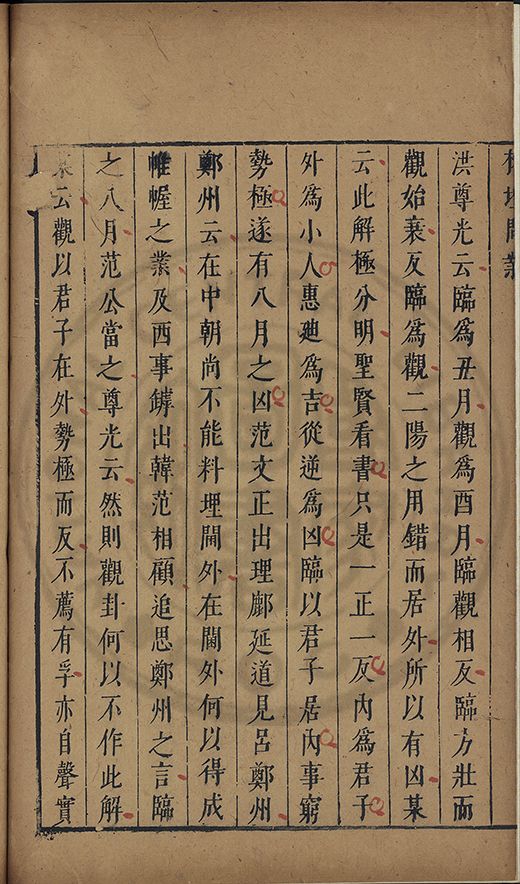 洪尊光云臨為丑月觀為酉月臨觀相反臨方壯而
觀始衰反臨為觀二陽之用錯而居外所以有凶某
云此解極分明聖賢看書只是一正一反內為君子
外為小人惠廸為吉從逆為凶臨以君子居內事窮
勢極遂有八月之凶范文正出理鄜延道見呂鄭州
鄭州云在中朝尚不能料理閫外在閫外何以得成
帷幄之業及西事鏬出韓范相顧追思鄭州之言臨
之八月范公當之尊光云然則觀卦何以不作此解
某云觀以君子在外勢極而反不薦有孚亦自聲實